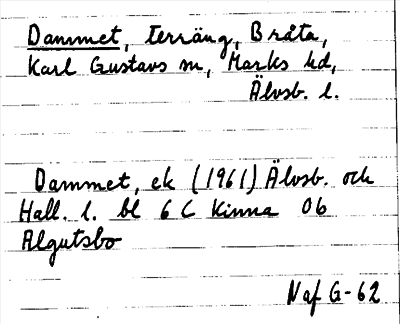 Dammet, terräng, Bråta,
Karl Gustavs sn, Marks hd,
Älvsb. l.
Dammet, ek (1961) Älvsb. och
Hall. l. bl 6 C Kinna 0b
Algutsbo
Naf G-62